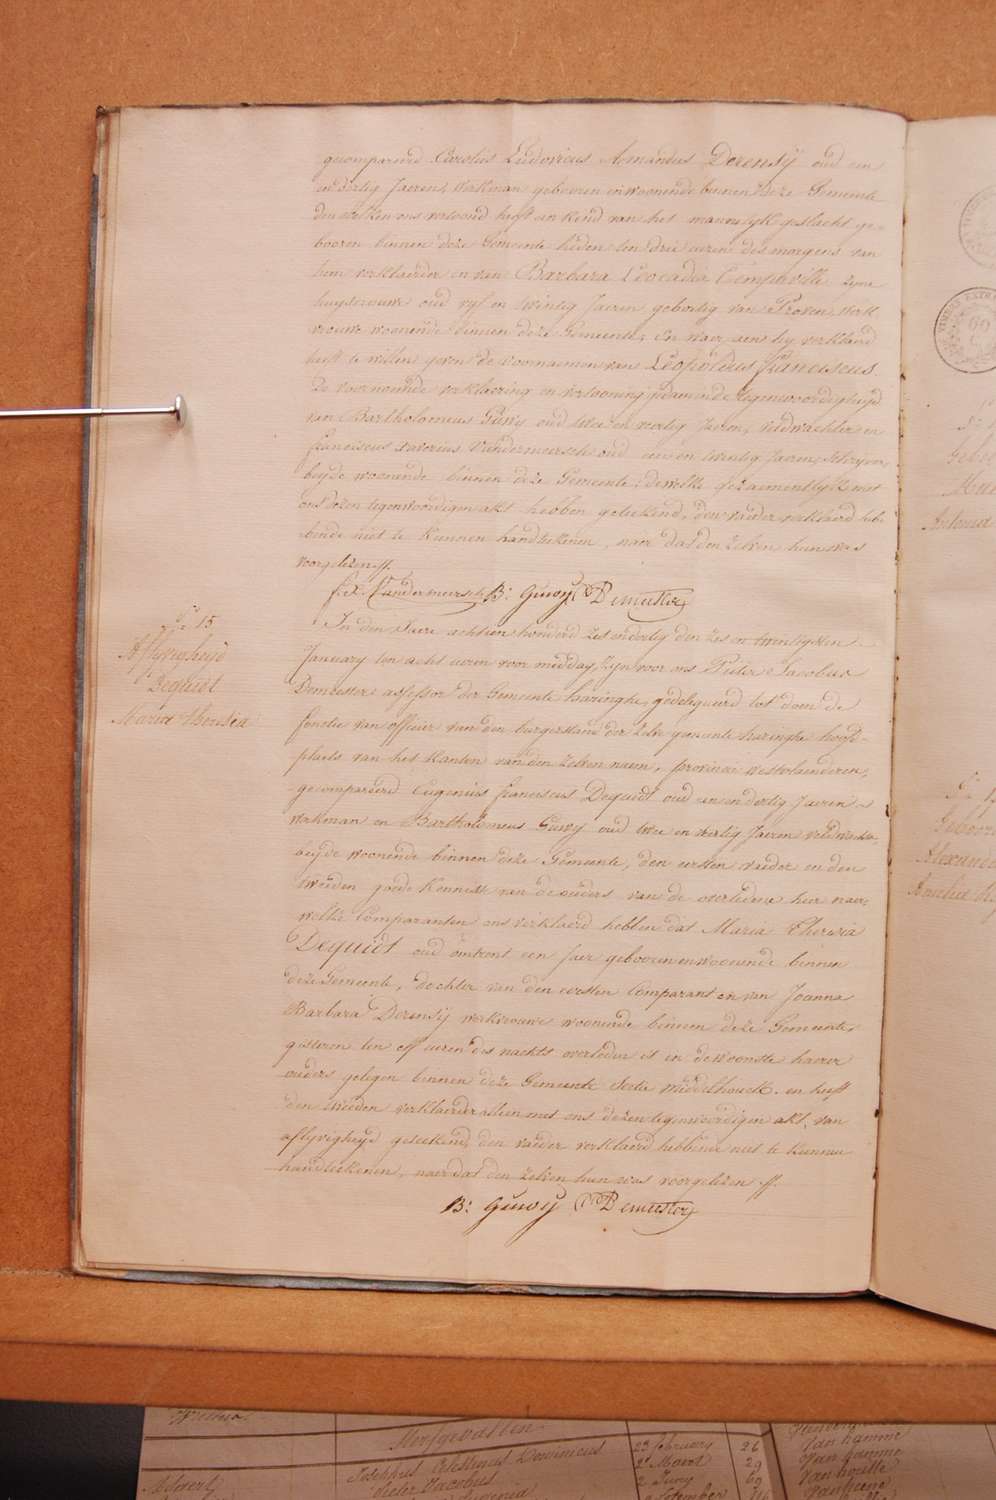 gecompareerd Carolus Ludovicus Armandus Derensij oud een
en dertig Jaeren, werkman gebooren en woonende binnen deze Gemeente
den welken ons vertoond heeft een kind van het mannelyk geslacht ge-
booren binnen deze Gemeente heden ten drie uren des morgens van
hem verklaerder en van Barbara Leocadia zyne
huysvrouwe oud vyf en twintig Jaeren geboortig van Proven, werk
vrouwe woonende binnen deze Gemeente, en waer aen hy verklaerd
heeft te willen geven de voornaemen van Leopoldus Franciscus
De voornoemde verklaering en vertooning gedaen in de tegenwoordigheyd
van Bartholomeus Guwy oud twee en veertig Jaeren, veldwachter en
Franciscus Xaverius Vandermeersch oud een en twintig Jaeren, schryver,
beyde woonende binnen deze Gemeente, dewelke gezaementlyk met
ons dezen tegenwoordigen akt hebben geteekend, den vaeder verklaerd heb-
bende niet te kunnen handteekenen, naer dat den zelven hun was
voorgelezen ff.
f: x: Vandermeersch B: Guwy P Demeester
N° 15
Aflyvigheyd
Dequidt
Maria Theresia
In den Jaere achtien honderd zes en dertig den zes en twentigsten
January ten acht uren voor middag, zyn voor ons Pieter Jacobus
Demeester assessor der Gemeente haringhe, gedelegueerd tot doen de
functie van officier van den burgerstand der zelve gemeente haringhe hoofd-
plaets van het kanton van den zelven naem, provincie westvlaenderen,
gecompareerd Eugenius franciscus Dequidt oud een en dertig Jaeren
werkman en Bartholomeus Guwy oud twee en veertig Jaeren veldwachter
beyde woonende binnen deze Gemeente, den eersten vaeder en den
tweeden goede kennisse van de ouders van de overledene hier naer,
welke Comparanten ons verklaerd hebben dat Maria Theresia
Dequidt oud omtrent een Jaer gebooren en woonende binnen
deze Gemeente, dochter van den eersten Comparant en van Joanna
Barbara Derensij werkvrouwe woonende binnen deze Gemeente,
gisteren ten elf uren des nachts overleden is in de woonste haerer
ouders gelegen binnen deze Gemeente Sectie middelhouck. en heeft
den tweeden verklaerder alleen met ons dezen tegenwoordigen akt van
aflyvigheyd geteekend, den vaeder verklaerd hebbende niet te kunnen
handteekenen, naer dat den zelven hun was voorgelezen ff.
B: Guwy P Demeester
Antonia
Geboor
Alexande
Amelia
Joséphus Célestinus Dominicus 23 february 26
Pieter Jacobus 2 Maert 29
2 Juny 60
Van hamme
Van houtte